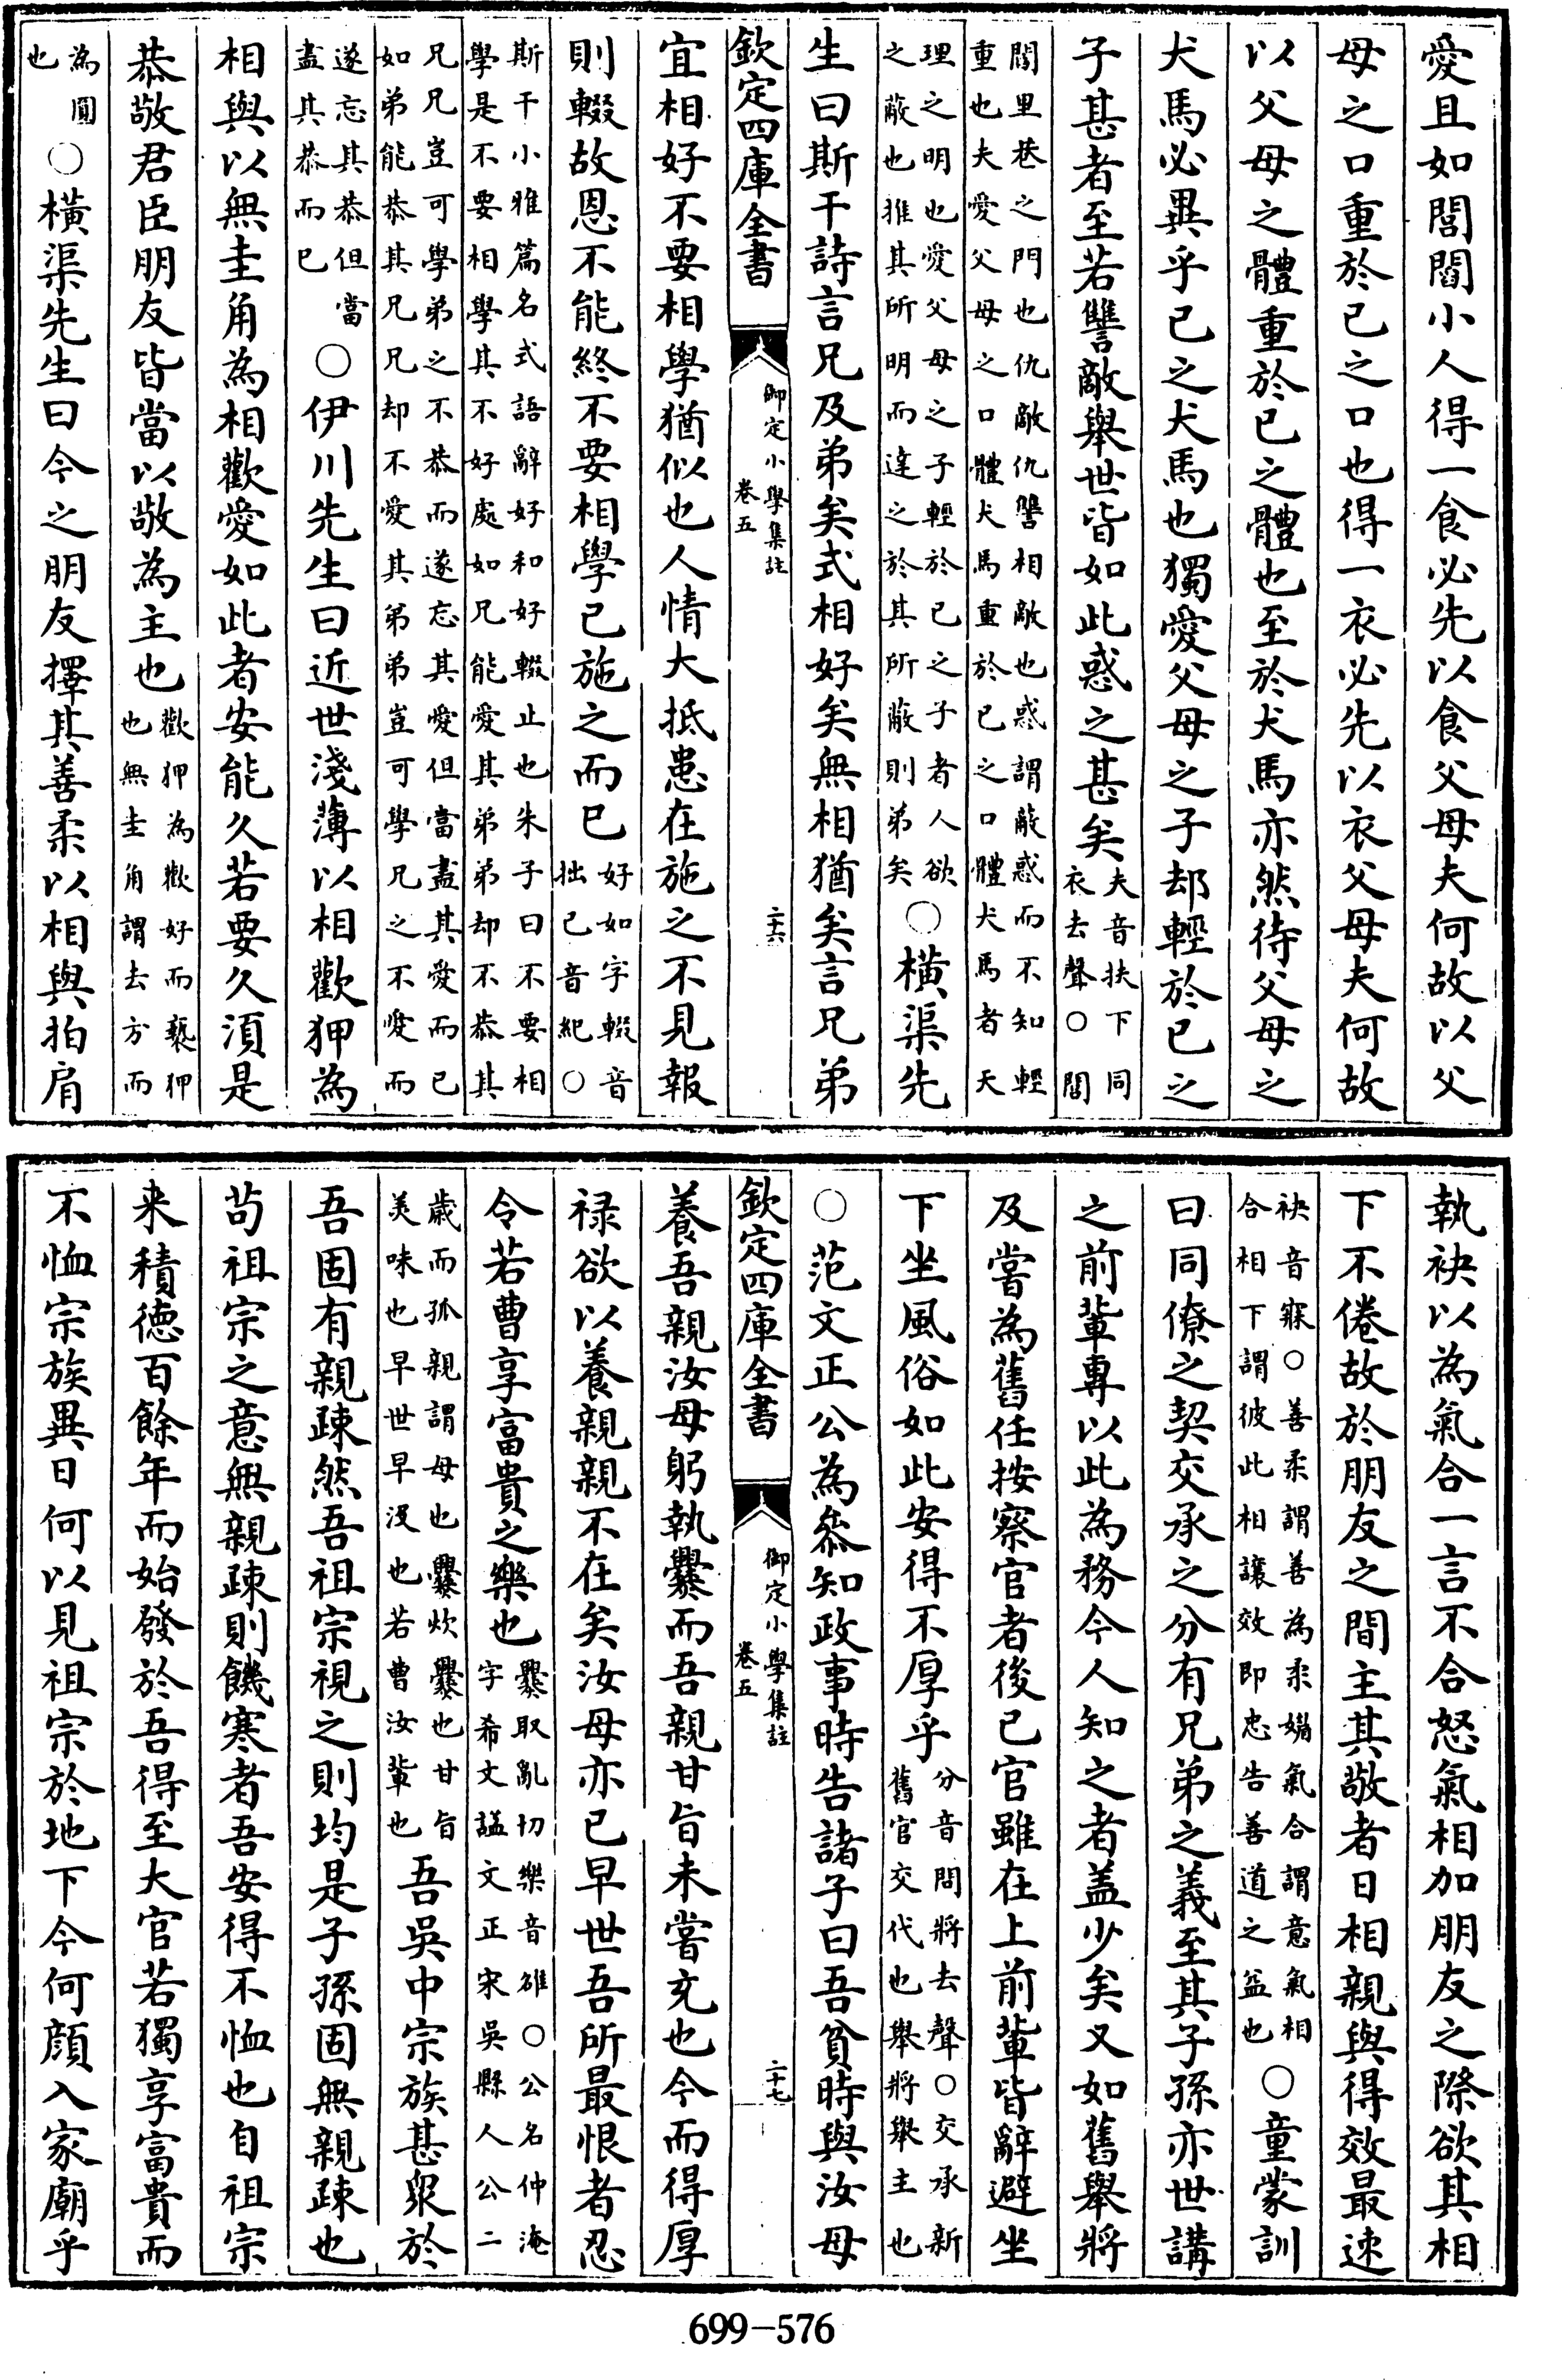 愛且如閭閻小人得一食必先以食父母夫何故以父
母之口重於己之口也得一衣必先以衣父母夫何故
以父母之體重於己之體也至於犬馬亦然待父母之
犬馬必異乎己之犬馬也獨愛父母之子却輕於己之
子甚者至若讐敵舉世皆如此惑之甚矣夫音扶下同衣去聲○閭
閻里巷之門也仇敵仇讐相敵也惑謂蔽惑而不知輕重也夫愛父母之口體犬馬重於己之口體犬馬者天
理之明也愛父母之子輕於己之子者人欲之蔽也推其所明而達之於其所蔽則弟矣○橫渠先
生曰斯干詩言兄及弟矣式相好矣無相猶矣言兄弟
欽定四庫全書
御定小學集註
卷五
二十六
宜相好不要相學猶似也人情大抵患在施之不見報
則輟故恩不能終不要相學己施之而已好如字輟音拙己音紀○
斯干小雅篇名式語辭好和好輟止也朱子曰不要相學是不要相學其不好處如兄能愛其弟弟却不恭其
兄兄豈可學弟之不恭而遂忘其愛但當盡其愛而已如弟能恭其兄兄却不愛其弟弟豈可學兄之不愛而
遂忘其恭但當盡其恭而已○伊川先生曰近世淺薄以相歡狎為
相與以無圭角為相歡愛如此者安能久若要久須是
恭敬君臣朋友皆當以敬為主也歡狎為歡好而褻狎也無圭角謂去方而
為圓也○橫渠先生曰今之朋友擇其善柔以相與拍肩
執袂以為氣合一言不合怒氣相加朋友之際欲其相
下不倦故於朋友之間主其敬者日相親與得效最速
袂音寐○善柔謂善為柔媚氣合謂意氣相合相下謂彼此相讓效即忠告善道之益也○童蒙訓
曰同僚之契交承之分有兄弟之義至其子孫亦世講
之前輩專以此為務今人知之者盖少矣又如舊舉將
及嘗為舊任按察官者後己官雖在上前輩皆辭避坐
下坐風俗如此安得不厚乎分音問將去聲○交承新舊官交代也舉將舉主也
○范文正公為叅知政事時告諸子曰吾貧時與汝母
欽定四庫全書
御定小學集註
卷五
二十七
養吾親汝母躬執爨而吾親甘旨未嘗充也今而得厚
祿欲以養親親不在矣汝母亦已早世吾所最恨者忍
令若曹享富貴之樂也爨取亂切樂音雒○公名仲淹字希文諡文正宋吳縣人公二
歲而孤親謂母也爨炊爨也甘旨美味也早世早沒也若曹汝輩也吾吳中宗族甚眾於
吾固有親疎然吾祖宗視之則均是子孫固無親疎也
苟祖宗之意無親疎則饑寒者吾安得不恤也自祖宗
來積德百餘年而始發於吾得至大官若獨享富貴而
不恤宗族異日何以見祖宗於地下今何顔入家廟乎
699-576